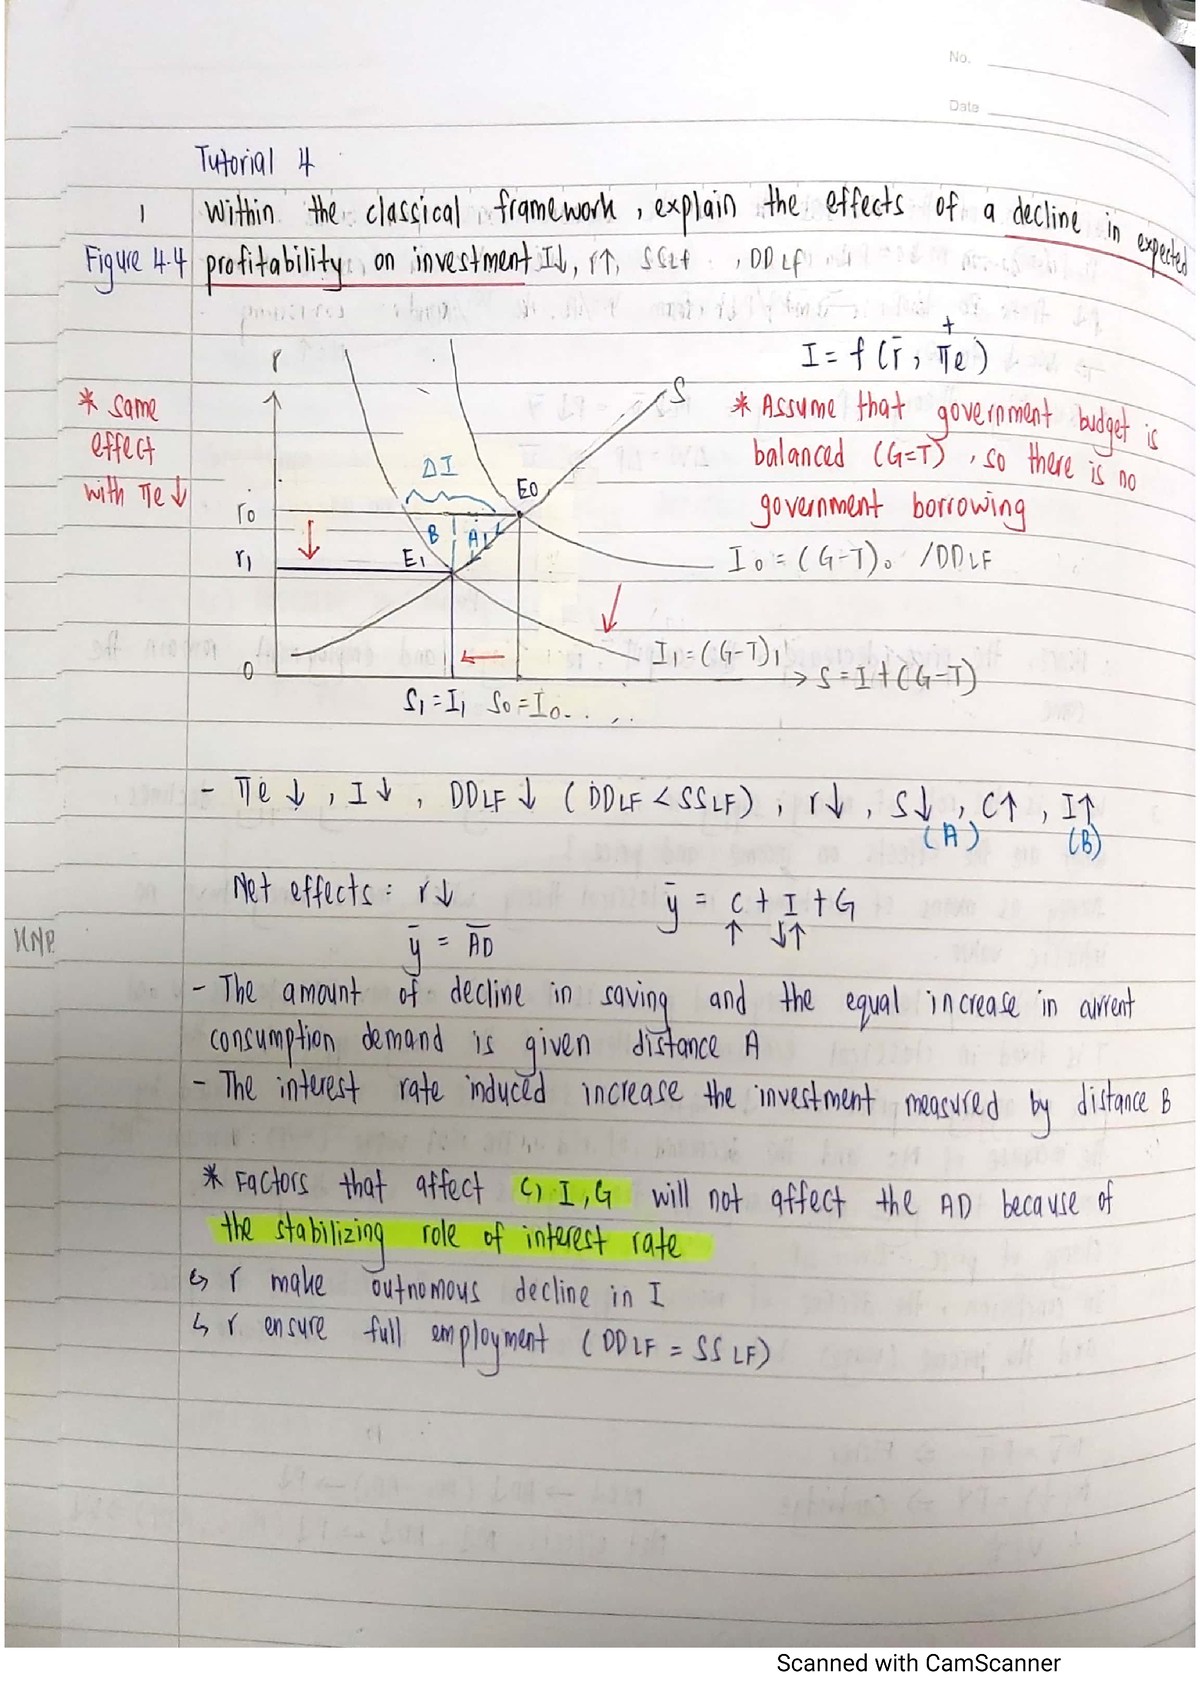 No.
Date
Tutorial 4
1 Within the classical framework, explain the effects of a decline in expected
Figure 4.4 profitability on investment I↓, r↑, SSLF , DDLF
I = f (r̄, πe⁺)
* same
effect
with πe ↓
* Assume that government budget is
balanced (G=T), so there is no
government borrowing
r
S
ΔI
E0
r0
B
A
r1
E1
I0 = (G-T)0 /DDLF
I1 = (G-T)1
0
S = I + (G-T)
S1 = I1 S0 = I0
- πe ↓, I↓, DDLF ↓ (DDLF < SSLF), r↓, S↓, C↑, I↑
(A) (B)
Net effects: r↓ ȳ = C + I + G
↑ ↓↑
ȳ = AD̄
- The amount of decline in saving and the equal increase in current
consumption demand is given distance A
- The interest rate induced increase the investment measured by distance B
* Factors that affect C, I, G will not affect the AD because of
the stabilizing role of interest rate
↳ r make outnomous decline in I
↳ r ensure full employment (DDLF = SSLF)
Scanned with CamScanner